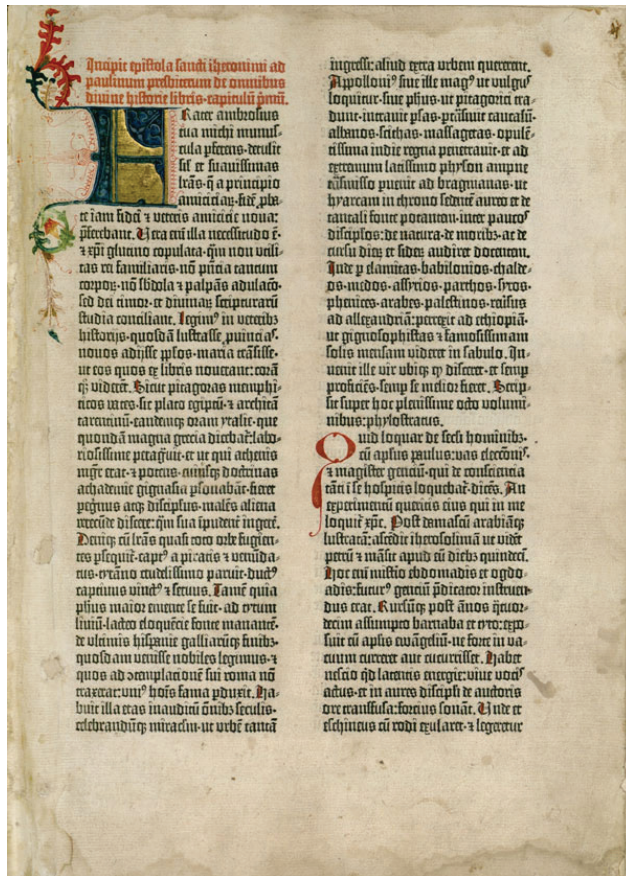 Incipit epistola sancti iheronimi ad
paulinum presbiterum de omnibus
divine historie libris·capitulū p̄mū.
Frater ambrosius
tua michi munus-
cula pferens·detulit
sil et suavissimas
lrās·q̄ a principio
amiciciaꝝ·fidē pba-
te iam fidei ⁊ veteris amicicie nova:
pferebant. Vera eni illa necessitudo ē·
⁊ xpi glutino copulata·q̄m non utili-
tas rei familiaris·nō pn̄cia tantum
corpoꝝ·nō sbdola ⁊ palpās adulacō·
sed dei timor·et divinaꝝ scripturarū
studia conciliant. Legimꝰ in veteribꝫ
historijs·quosdā lustrasse·puincias·
novos adijsse pplos·maria trāsisse·
ut eos quos ex libris noverant: corā
qꝫ viderēt. Sicut pitagoras memphi-
ticos vates·sic plato egiptū·⁊ architā
tarentinū·eandemqꝫ oram ytalie·que
quondā magna grecia dicebaꞇ: labo-
riosissime peragvit·et ut qui athenis
mgr̄ erat·⁊ potens·cuiusqꝫ doctrinas
achademie gignasia psonabāt·fieret
pegrinus atqꝫ discipulus·malēs aliena
verecunde discere: q̄m sua īpudent̄ ingerē.
Deniqꝫ cū lrās quasi toto orbe fugien-
tes psequiꞇ·captꝰ a piratis ⁊ venunda-
tus·tyrāno crudelissimo paruit·ductꝰ
captivus vinctꝰ ⁊ servus. Tamē quia
phūs maior emente se fuit·ad tytum
livium·lacteo eloquēcie fonte manantē·
de ultimis hispanie galliarūqꝫ finibꝫ·
quosdam venisse nobiles legimus·⁊
quos ad ꝯtemplacionē sui roma nō
traxerat: uniꝰ hoīs fama pduxit. Ha-
buit illa etas inauditū ōnibꝫ seculis·
celebrandūqꝫ miraclm·ut urbē tantā
ingressi: aliud extra urbem quererent.
Appolloniꝰ sive ille magꝰ ut vulgus
loquitur·sive phūs·ut pitagorici tra-
dunt·intravit psas·ptrāsivit caucasū·
albanos·scithas·massagetas·opulē-
tissima indie regna penetravit·et ad
extremum latissimo physon ampne
trāsmisso puenit ad bragmanas·ut
hyarcam in throno sedentē aureo et de
tantali fonte potantem·inter paucos
discipulos: de natura·de moribꝫ·ac de
cursu dieꝝ et sideꝝ audiret docentem.
Inde p elamitas·babilonios·chalde-
os·medos·assyrios·parthos·syros·
phenices·arabes·palestinos·reversus
ad allexandriā: perrexit ad ethiopiā·
ut gignosophistas ⁊ famosissimam
solis mensam videret in sabulo. In-
venit ille vir ubiqꝫ qd̄ disceret·et semp
proficiēs·semp se melior fieret. Scrip-
sit super hoc plenissime octo volumi-
nibus: phylostratus.
Quid loquar de secli hominibꝫ·
cū aplus paulus: vas electōnis·
⁊ magister genciū·qui de consciencia
tāti ī se hospitis loquebaꞇ·dicēs. An
experimentū queritis eius qui in me
loquiꞇ xpc̄. Post damascū arabiāqꝫ
lustratā: ascēdit iherosolimā ut vidēt
petrū ⁊ māsit apud eū diebꝫ quindeci.
Hoc eni misterio ebdomadis et ogdo-
adis: futurꝰ genciū p̄dicator instruen-
dus erat. Rursūqꝫ post ānos q̄tuor-
decim assumpto barnaba et tyto: expo-
suit cū aplis ewāgeliū·ne forte in va-
cuum curreret aut cucurrisset. Habet
nescio qd̄ latentis energie: vive vocis
actus·et in aures discipuli de auctoris
ore transfusa: forcius sonāt. Unde et
eschineus cū rodi exularet·⁊ legeretur